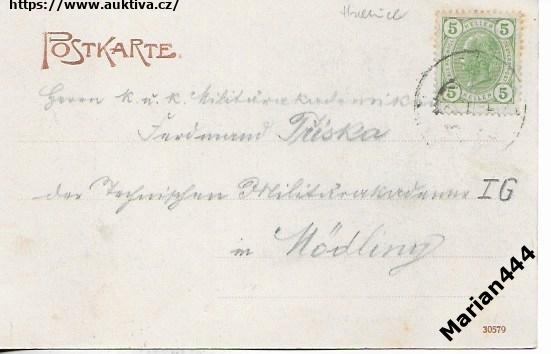 https://www.auktiva.cz/
POSTKARTE.
5 HELLER 5
5 HELLER 5
Herrn k. u. k. Militärakademiker
Ferdinand Tříska
der Technischen Militärakademie IG
in Mödling
Marian444
30579